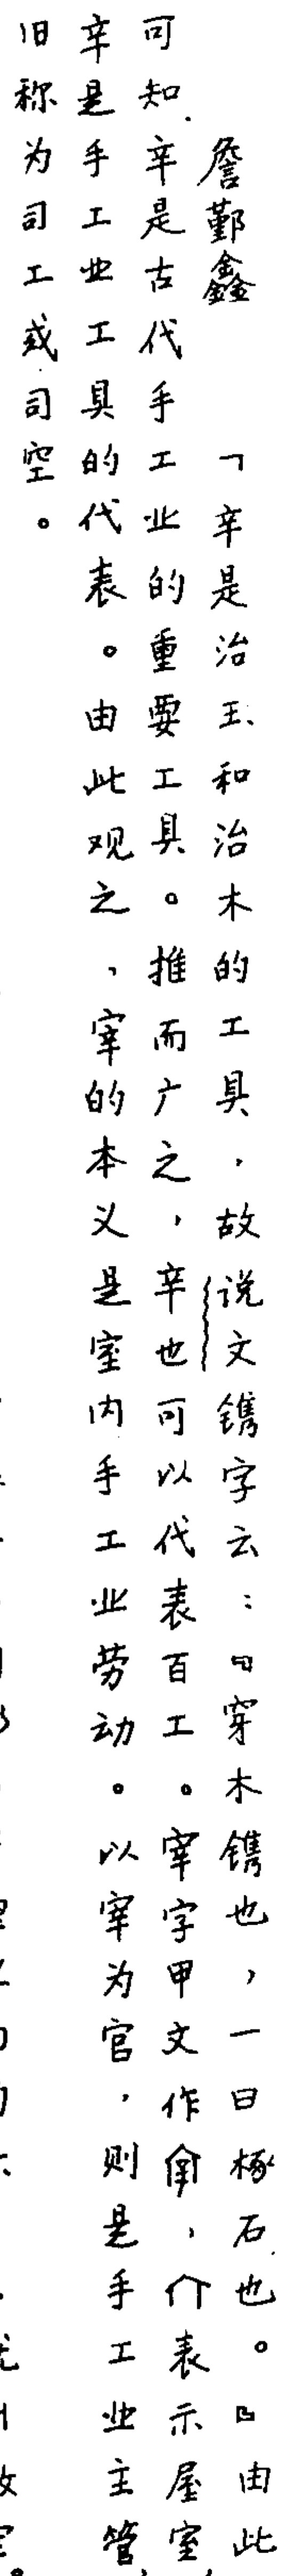 詹鄞鑫　「辛是治玉和治木的工具，故说文镌字云：『穿木镌也，一曰椓石也。』由此
可知，辛是古代手工业的重要工具。推而广之，辛也可以代表百工。宰字甲文作，宀表示屋室
辛是手工业工具的代表。由此观之，宰的本义是室内手工业劳动。以宰为官，则是手工业主管
旧称为司工或司空。